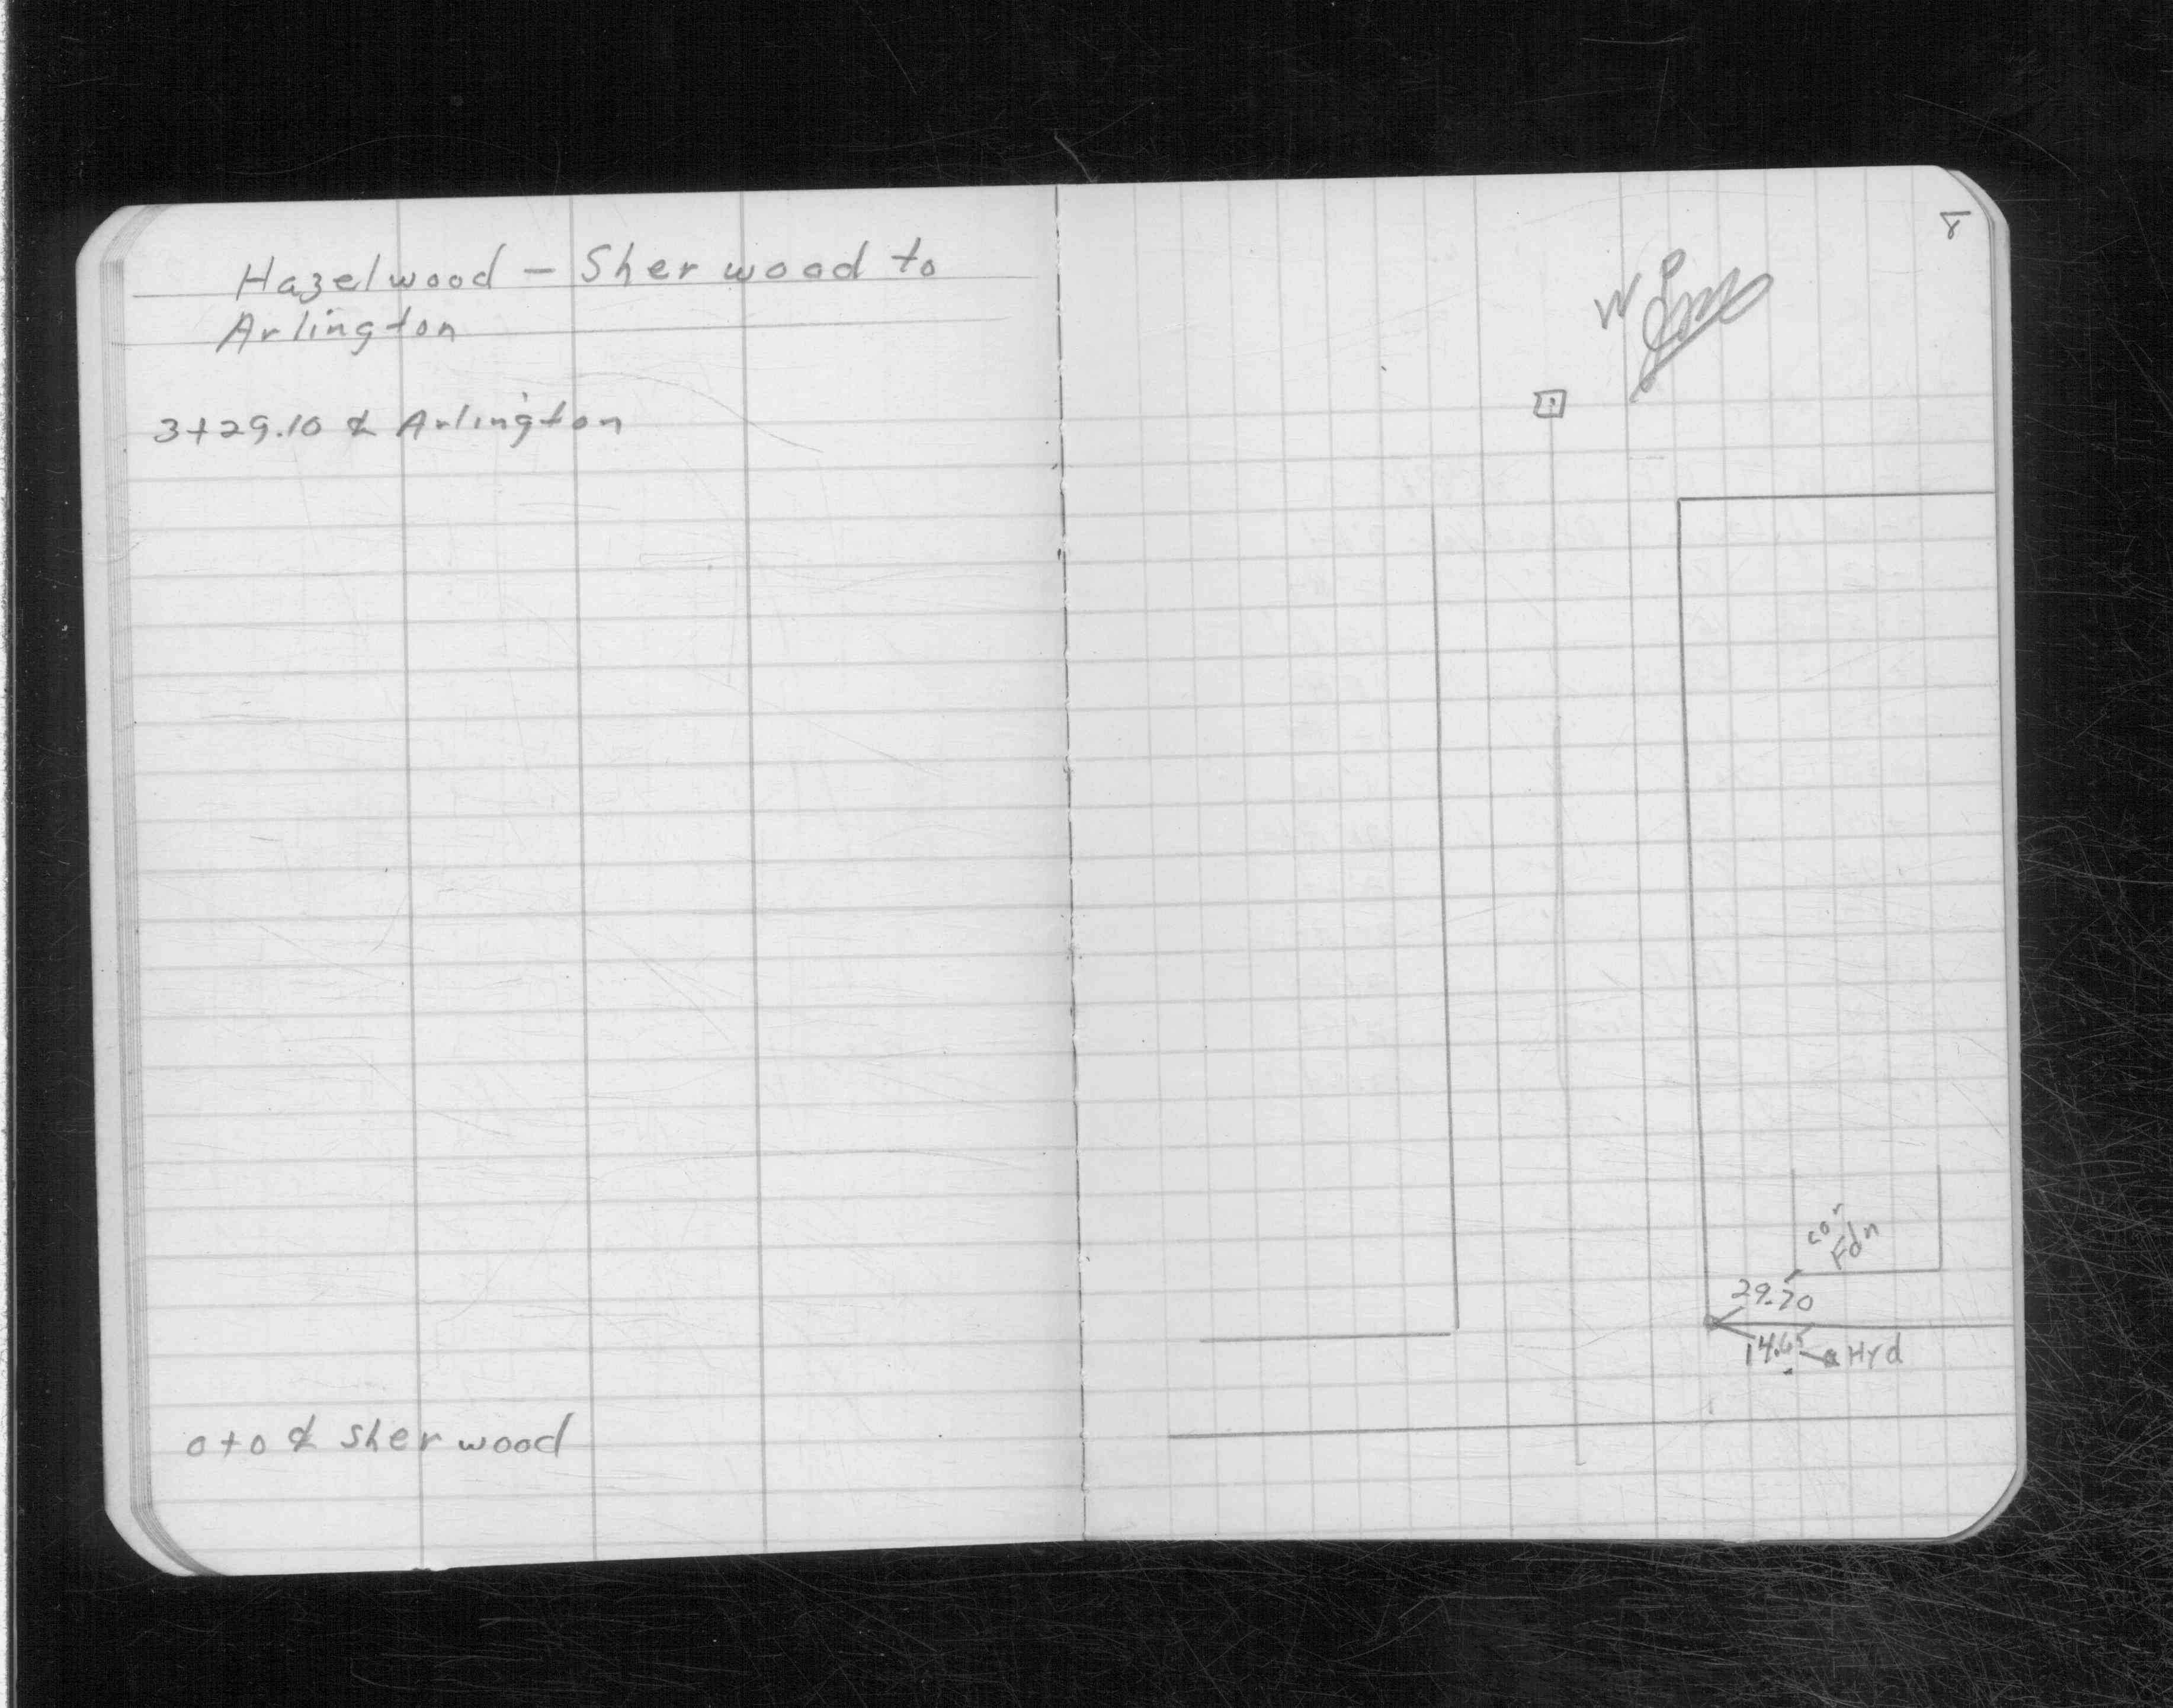 Hazelwood - Sherwood to
Arlington
3+29.10 ℄ Arlington
0+0 ℄ Sherwood
8
W
cor
Fdn
29.70
14.65
Hyd